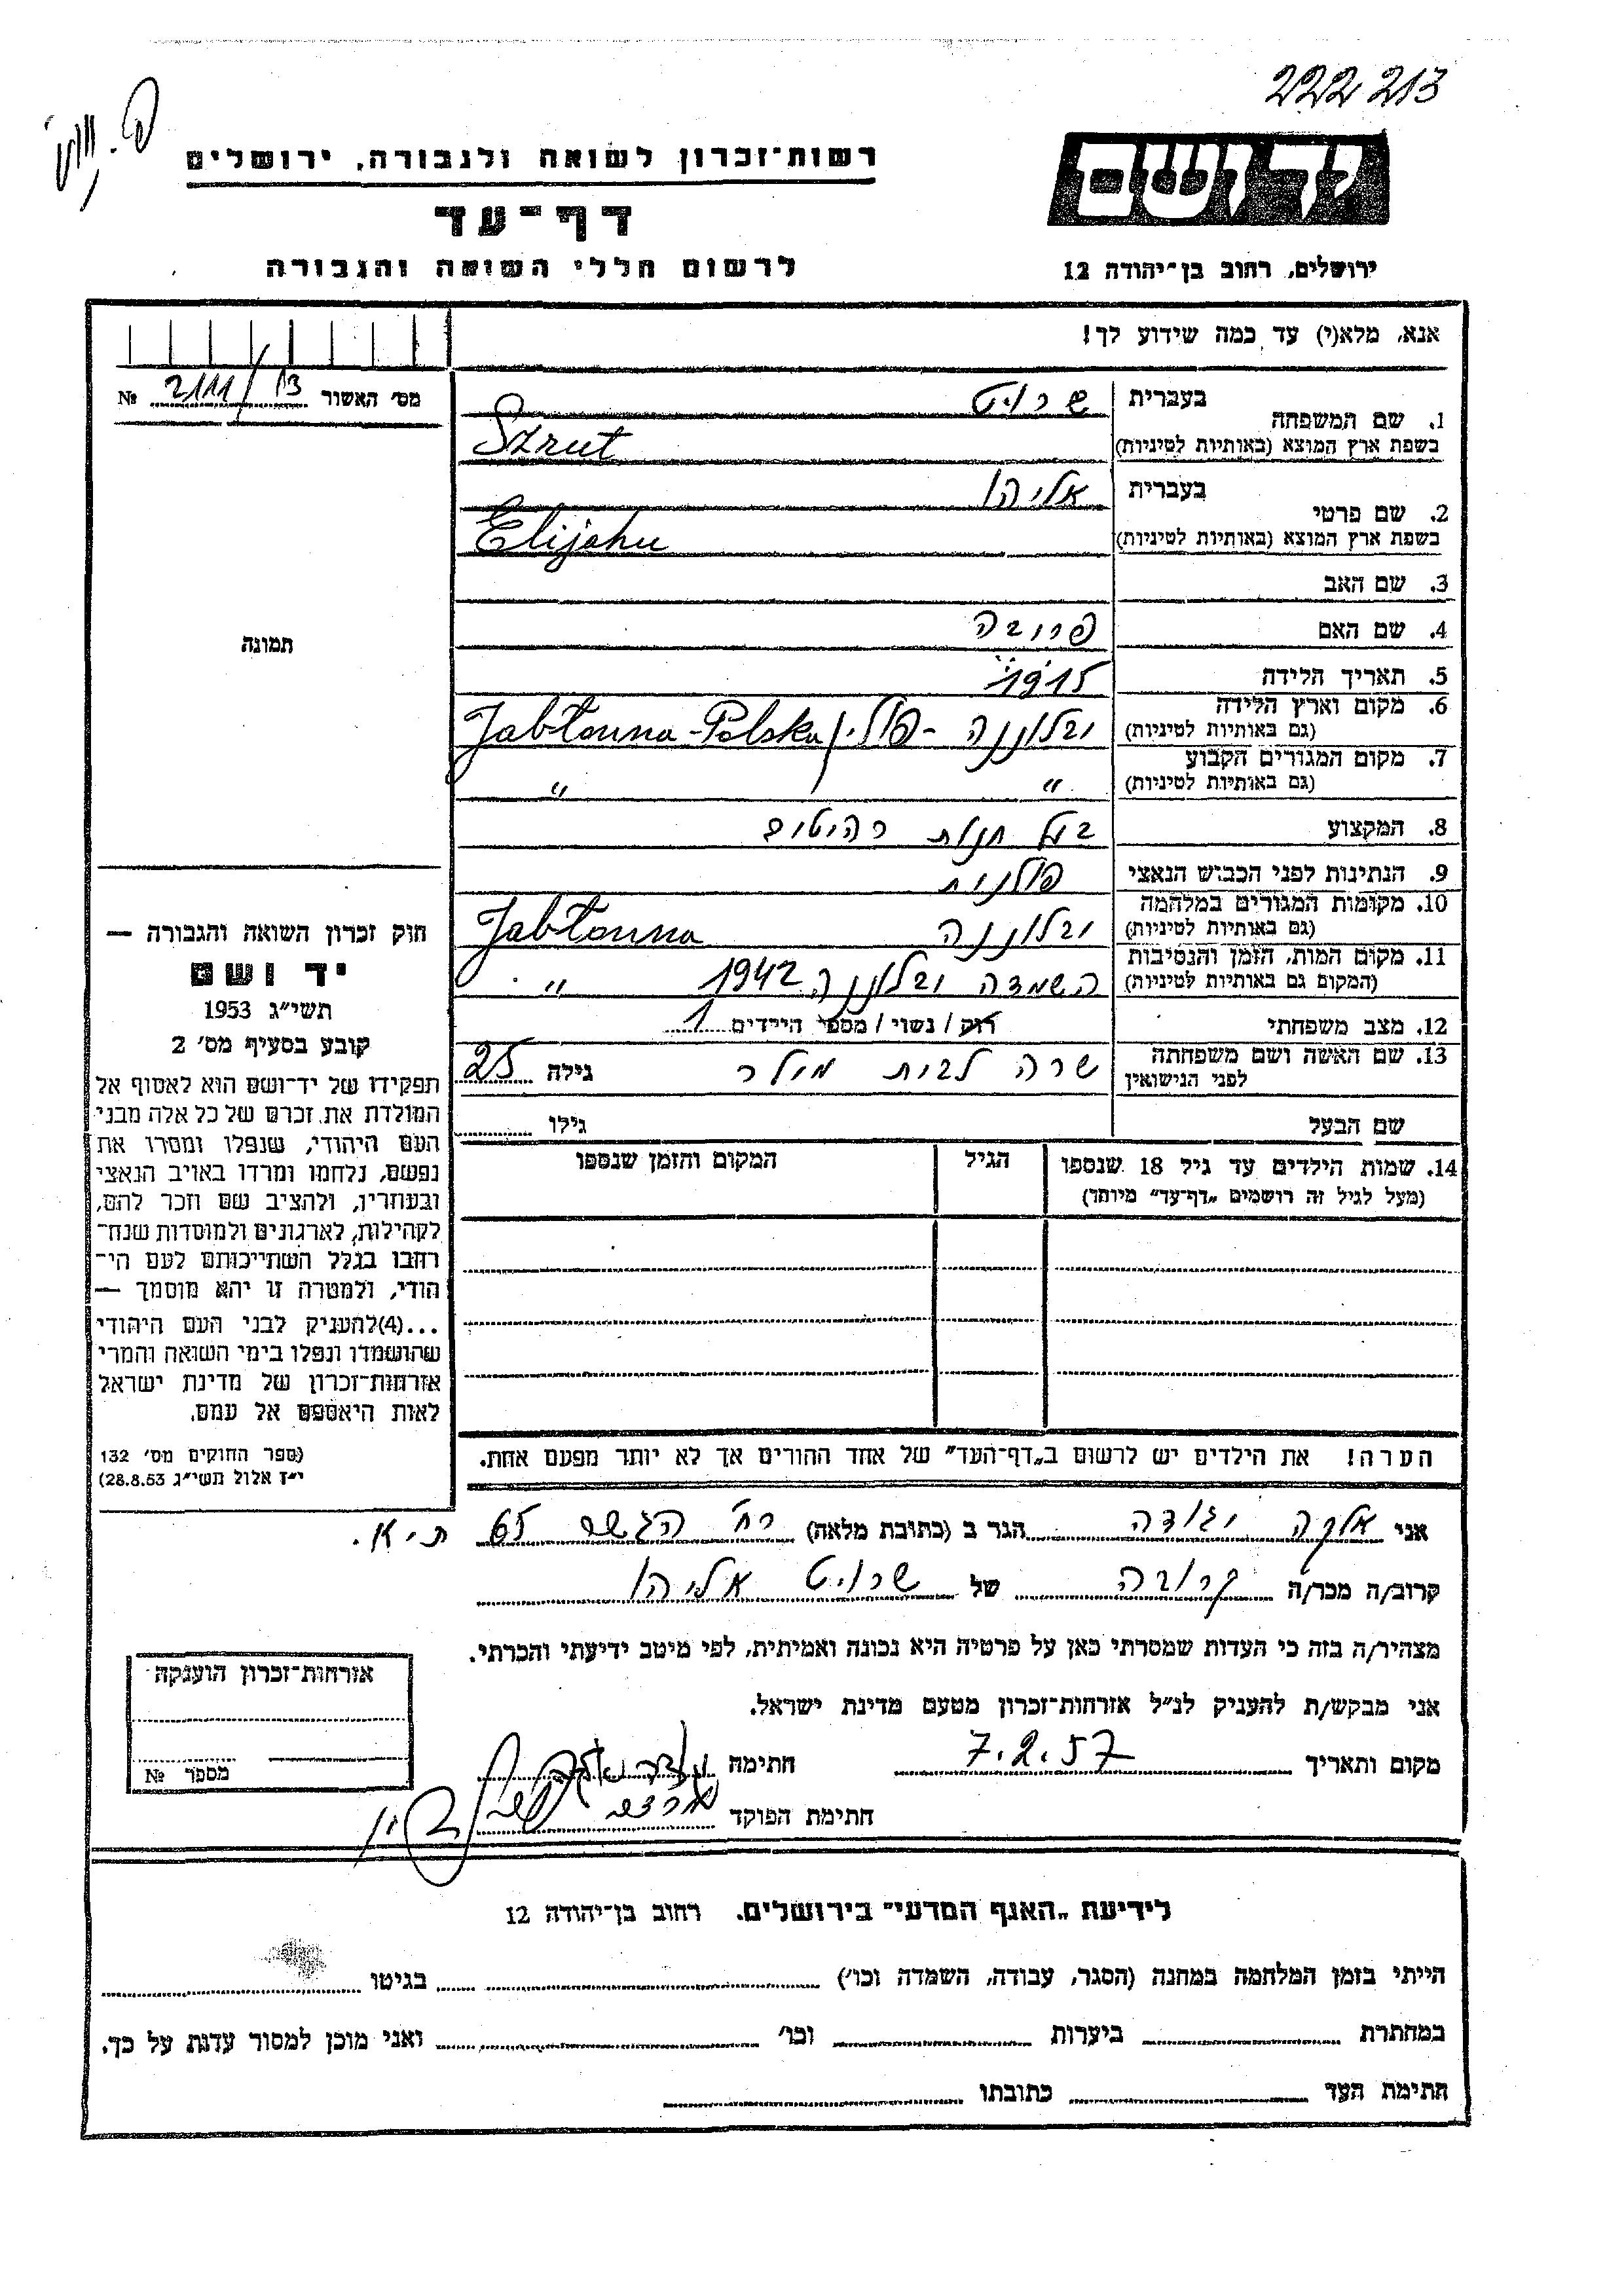 222213
יד ושם
רשות־זכרון לשואה ולגבורה, ירושלים
דף־עד
ירושלים, רחוב בן־יהודה 12
לרשום חללי השואה והגבורה
אנא, מלא(י) עד כמה שידוע לך!
מס׳ האשור 2111/13 №
1. שם המשפחה
בעברית שרוט
בשפת ארץ המוצא (באותיות לטיניות) Szrut
2. שם פרטי
בעברית אליהו
בשפת ארץ המוצא (באותיות לטיניות) Elijahu
3. שם האב
4. שם האם
תמונה
5. תאריך הלידה 1915
6. מקום וארץ הלידה
(גם באותיות לטיניות) יבלונה - פולין Jabłonna - Polska
7. מקום המגורים הקבוע
(גם באותיות לטיניות) " "
8. המקצוע בעל חנות רהיטים
9. הנתינות לפני הכבוש הנאצי פולנית
10. מקומות המגורים במלחמה
(גם באותיות לטיניות) יבלונה Jabłonna
11. מקום המות, הזמן והנסיבות
(המקום גם באותיות לטיניות) השמדה יבלונה 1942 "
12. מצב משפחתי רוק / נשוי / מספר הילדים 1
13. שם האשה ושם משפחתה
לפני הנישואין שרה לבית מילר גילה 25
שם הבעל גילו
14. שמות הילדים עד גיל 18 שנספו
(מעל לגיל זה רושמים „דף־עד" מיוחד)
הגיל
המקום והזמן שנספו
הערה! את הילדים יש לרשום ב„דף־העד" של אחד ההורים אך לא יותר מפעם אחת.
חוק זכרון השואה והגבורה —
יד ושם
תשי״ג 1953
קובע בסעיף מס׳ 2
תפקידו של יד־ושם הוא לאסוף אל
המולדת את זכרם של כל אלה מבני
העם היהודי, שנפלו ומסרו את
נפשם, נלחמו ומרדו באויב הנאצי
ובעוזריו, ולהציב שם וזכר להם,
לקהילות, לארגונים ולמוסדות שנח־
רבו בגלל השתייכותם לעם הי־
הודי, ולמטרה זו יהא מוסמך —
...(4)להעניק לבני העם היהודי
שהושמדו ונפלו בימי השואה והמרי
אזרחות־זכרון של מדינת ישראל
לאות היאספם אל עמם.
(ספר החוקים מס׳ 132
י״ז אלול תשי״ג 28.8.53)
אני אלקה הגר ב (כתובת מלאה) רח׳ 65 ת.א.
קרוב/ה מכר/ה קרובה של שרוט אליהו
מצהיר/ה בזה כי העדות שמסרתי כאן על פרטיה היא נכונה ואמיתית, לפי מיטב ידיעתי והכרתי.
אני מבקש/ת להעניק לנ״ל אזרחות־זכרון מטעם מדינת ישראל.
מקום ותאריך 7.2.57 חתימה
חתימת הפוקד
אזרחות־זכרון הוענקה
מספר №
לידיעת „האגף המדעי" בירושלים. רחוב בן־יהודה 12
הייתי בזמן המלחמה במחנה (הסגר, עבודה, השמדה וכו׳) בגיטו
במחתרת ביערות וכו׳ ואני מוכן למסור עדות על כך.
חתימת העד כתובתו